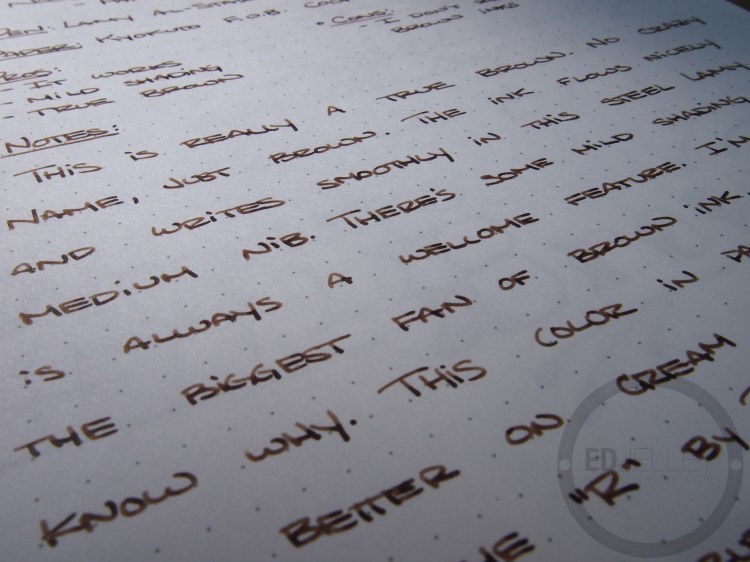 Lamy Al-Star
Kyokuto F.O.B. Coop
Pros:
- It works
- Mild shading
- True brown
• Cons:
- I don't
brown inks
Notes:
This is really a true brown. No crazy
name, just brown. The ink flows nicely
and writes smoothly in this steel Lamy
medium nib. There's some mild shading
is always a welcome feature. I'm
the biggest fan of brown ink.
know why. This color in
better on cream
"R" by
ED JELLEY